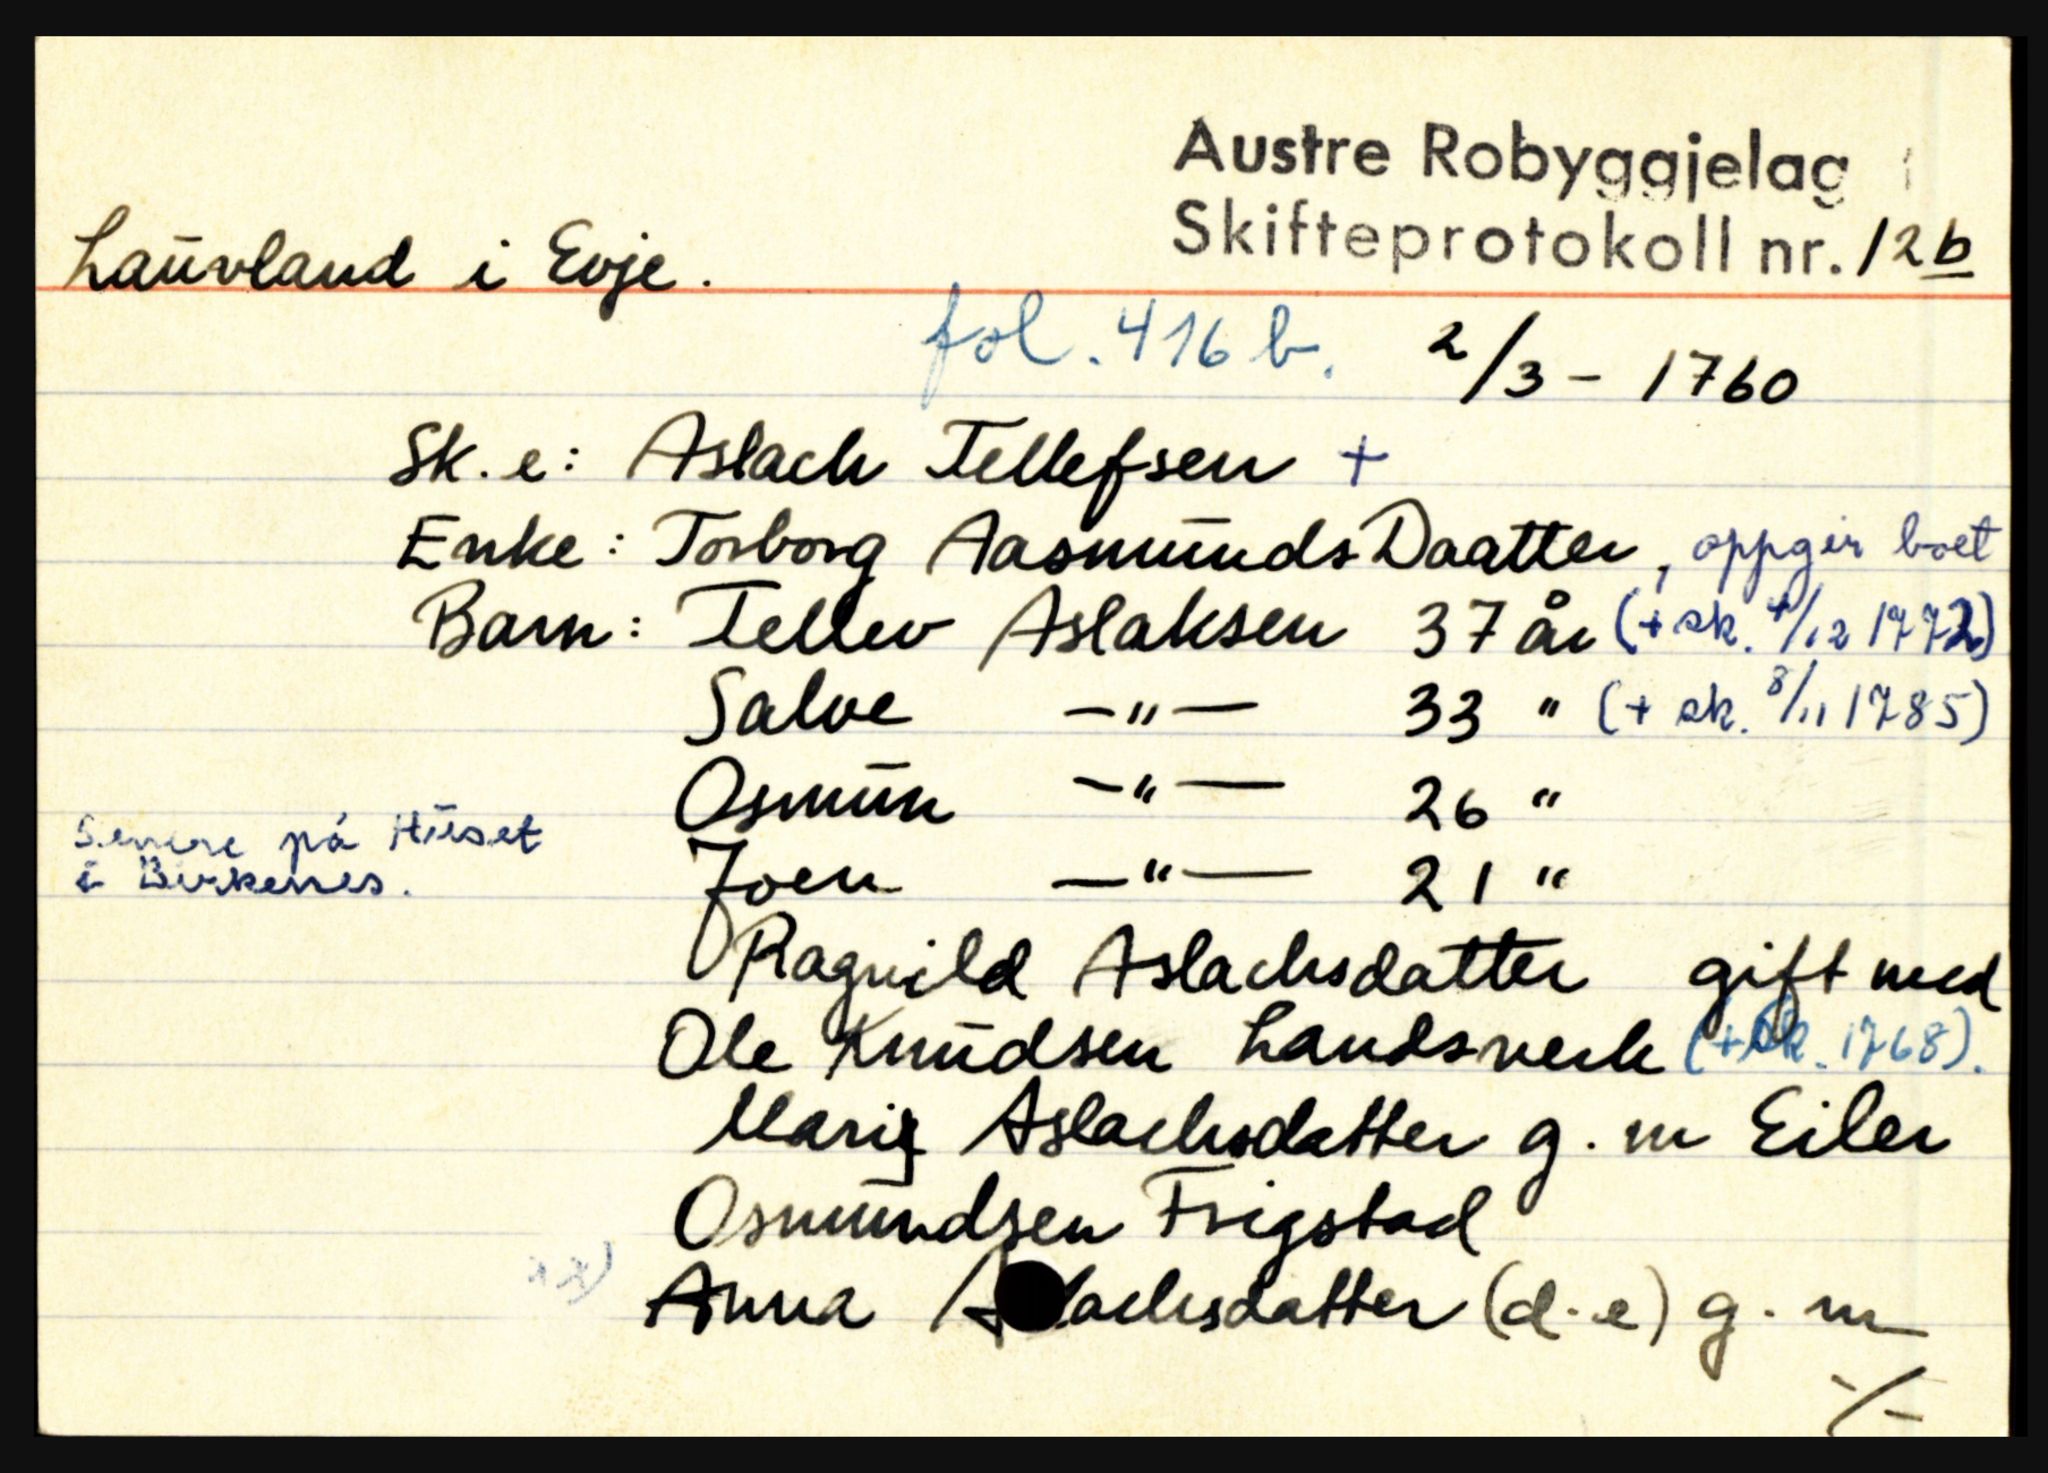 Austre Robyggjelag
Skifteprotokoll nr. 12b
Lauvland i Evje.
fol. 416 b. 2/3 - 1760
Sk. e: Aslach Tellefsen +
Enke: Torborg Aasmunds Daatter, oppgir boet
Barn: Tellev Aslaksen 37 år (+ sk. 4/12 1772)
Salve -"- 33 " (+ sk. 8/11 1785)
Osmun -"- 26 "
Senere på Huset
i Birkenes.
Joen -"- 21 "
Ragnild Aslachsdatter gift med
Ole Knudsen Landsverk (+ sk. 1768).
Mari Aslachsdatter g. m Eiler
Osmundsen Frigstad
xx) Anna A lachsdatter (d.e) g. m
-/-